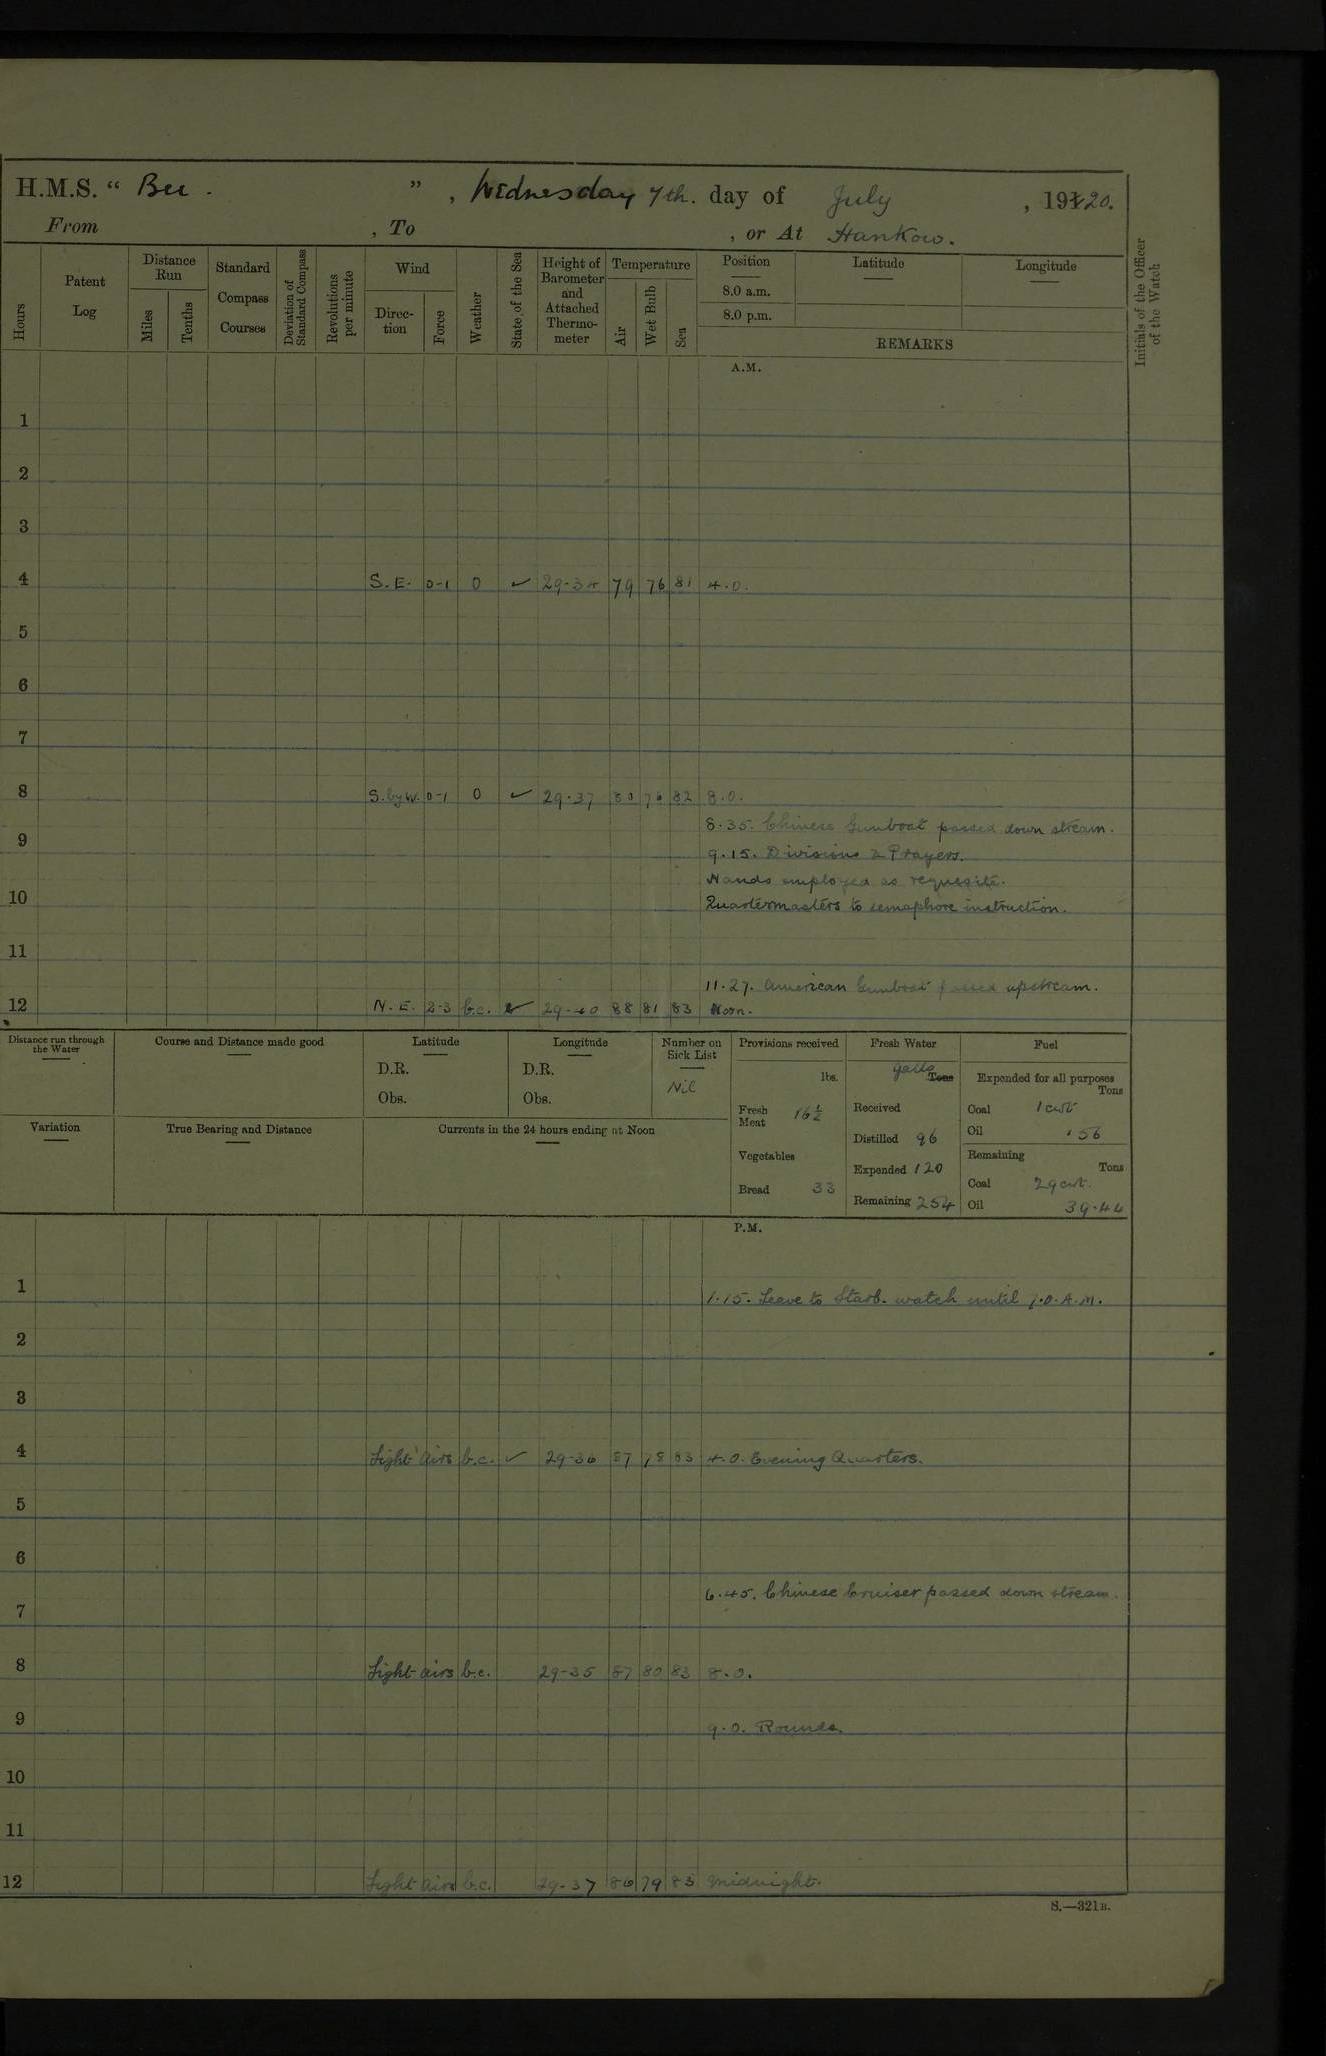 H.M.S. “ Bee. ” , Wednesday 7th. day of July , 191 20.
From , To , or At Hankow.
Hours
Patent Log
Distance Run
Miles
Tenths
Standard Compass Courses
Deviation of Standard Compass
Revolutions per minute
Wind
Direc-tion
Force
Weather
State of the Sea
Height of Barometer and Attached Thermo-meter
Temperature
Air
Wet Bulb
Sea
Position
8.0 a.m.
8.0 p.m.
Latitude
Longitude
REMARKS
Initials of the Officer of the Watch
A.M.
1
2
3
4 S.E. 0-1 0 ✓ 29-34 79 76 81 4.0.
5
6
7
8 S. by W. 0-1 0 ✓ 29.37 80 76 82 8.0.
8.35. Chinese Gunboat passed down stream.
9
9.15. Divisions & Prayers.
Hands employed as requesite.
10 Quartermasters to semaphore instruction.
11
11.27. American Gunboat passed upstream.
12 N.E. 2-3 b.c. ✓ 29-40 88 81 83 Noon.
Distance run through the Water
Course and Distance made good
Latitude
D.R.
Obs.
Longitude
D.R.
Obs.
Number on Sick List
Nil
Variation
True Bearing and Distance
Currents in the 24 hours ending at Noon
Provisions received
lbs.
Fresh Meat 16 ½
Vegetables
Bread 33
Fresh Water
galls Tons
Received
Distilled 96
Expended 120
Remaining 254
Fuel
Expended for all purposes
Tons
Coal 1 cwt
Oil .56
Remaining
Tons
Coal 29 cwt.
Oil 39.44
P.M.
1 1.15. Leave to Starb. watch until 7.0.A.M.
2
3
4 Light airs b.c. ✓ 29-36 87 78 83 4.0. Evening Quarters.
5
6
6.45. Chinese Cruiser passed down stream.
7
8 Light airs b.c. 29-35 87 80 83 8.0.
9 9.0. Rounds.
10
11
12 Light airs b.c. 29-37 86 79 83 Midnight.
S.—321B.